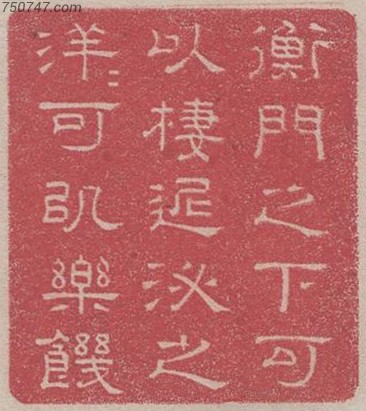 750747.com
衡門之下可
以棲遲泌之
洋〻可以樂饑